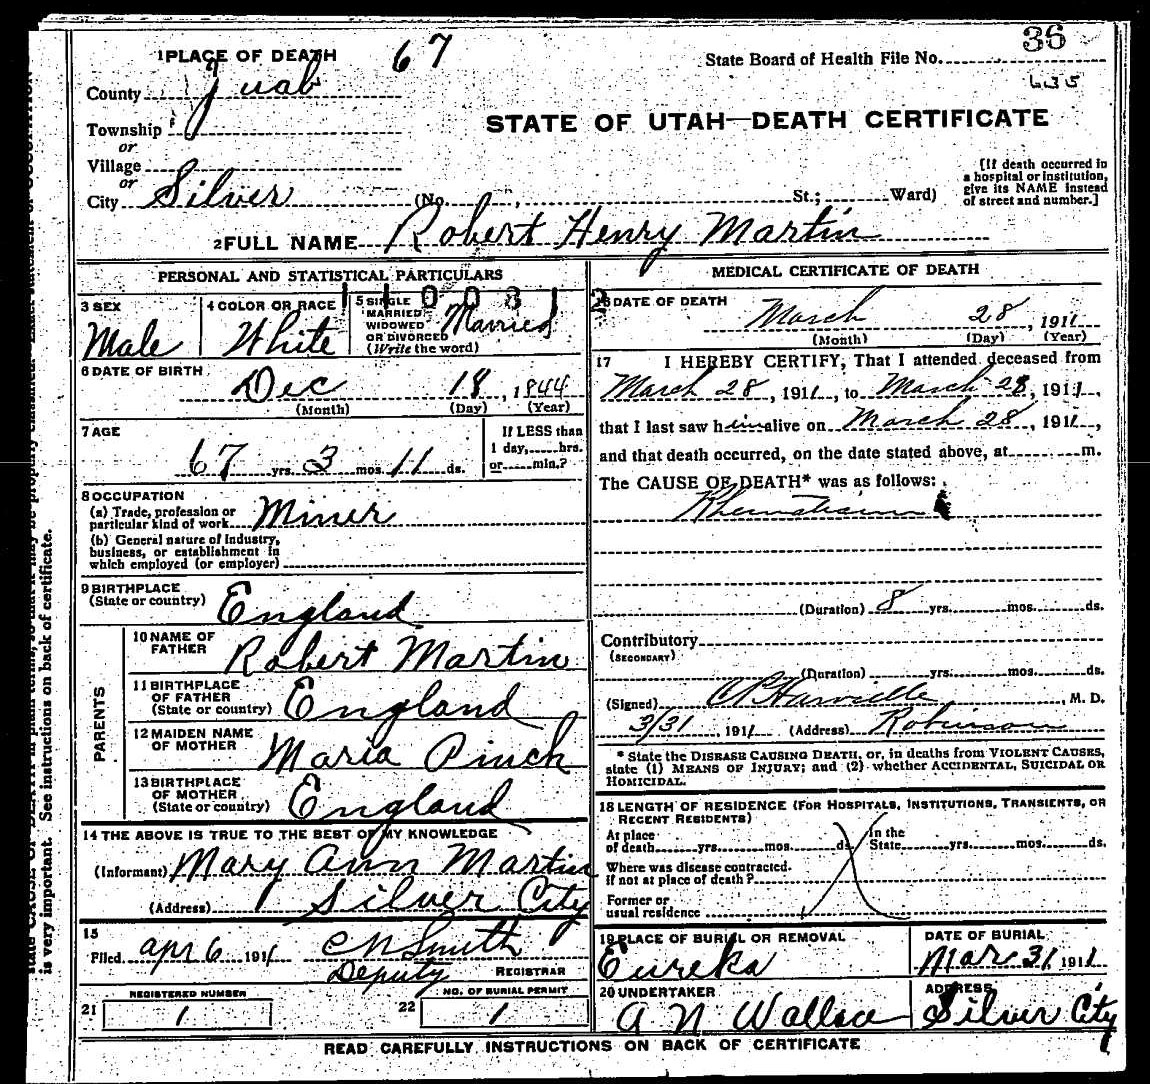 1 PLACE OF DEATH 67
State Board of Health File No. 36
635
County Juab
Township
or
Village
or
City Silver (No. , St.; Ward)
STATE OF UTAH—DEATH CERTIFICATE
[If death occurred in
a hospital or institution,
give its NAME instead
of street and number.]
2 FULL NAME Robert Henry Martin
PERSONAL AND STATISTICAL PARTICULARS
3 SEX
Male
4 COLOR OR RACE
White
5 SINGLE
MARRIED
WIDOWED
OR DIVORCED
(Write the word)
Married
6 DATE OF BIRTH
Dec 18, 1844
(Month) (Day) (Year)
7 AGE
67 yrs. 3 mos. 11 ds.
If LESS than
1 day, hrs.
or min.?
8 OCCUPATION
(a) Trade, profession or
particular kind of work Miner
(b) General nature of Industry,
business, or establishment in
which employed (or employer)
9 BIRTHPLACE
(State or country) England
PARENTS
10 NAME OF
FATHER Robert Martin
11 BIRTHPLACE
OF FATHER
(State or country) England
12 MAIDEN NAME
OF MOTHER Maria Pinch
13 BIRTHPLACE
OF MOTHER
(State or country) England
14 THE ABOVE IS TRUE TO THE BEST OF MY KNOWLEDGE
(Informant) Mary Ann Martin
(Address) Silver City
15
Filed Apr 6 1911 C N Smith
Deputy REGISTRAR
21 REGISTERED NUMBER
1
22 NO. OF BURIAL PERMIT
1
MEDICAL CERTIFICATE OF DEATH
DATE OF DEATH
March 28, 1911
(Month) (Day) (Year)
17 I HEREBY CERTIFY, That I attended deceased from
March 28, 1911, to March 28, 1911,
that I last saw him alive on March 28, 1911,
and that death occurred, on the date stated above, at m.
The CAUSE OF DEATH* was as follows:
Rheumatism
(Duration) 8 yrs. mos. ds.
Contributory
(SECONDARY)
(Duration) yrs. mos. ds.
(Signed) , M. D.
3/31 1911 (Address) Robinson
* State the DISEASE CAUSING DEATH, or, in deaths from VIOLENT CAUSES,
state (1) MEANS OF INJURY; and (2) whether ACCIDENTAL, SUICIDAL OR
HOMICIDAL.
18 LENGTH OF RESIDENCE (FOR HOSPITALS, INSTITUTIONS, TRANSIENTS, OR
RECENT RESIDENTS)
At place
of death yrs. mos. ds.
In the
State yrs. mos. ds.
Where was disease contracted.
if not at place of death?
Former or
usual residence
19 PLACE OF BURIAL OR REMOVAL
Eureka
DATE OF BURIAL
Mar 31, 1911
20 UNDERTAKER
A N Wallace
ADDRESS
Silver City
READ CAREFULLY INSTRUCTIONS ON BACK OF CERTIFICATE
is very important. See instructions on back of certificate.